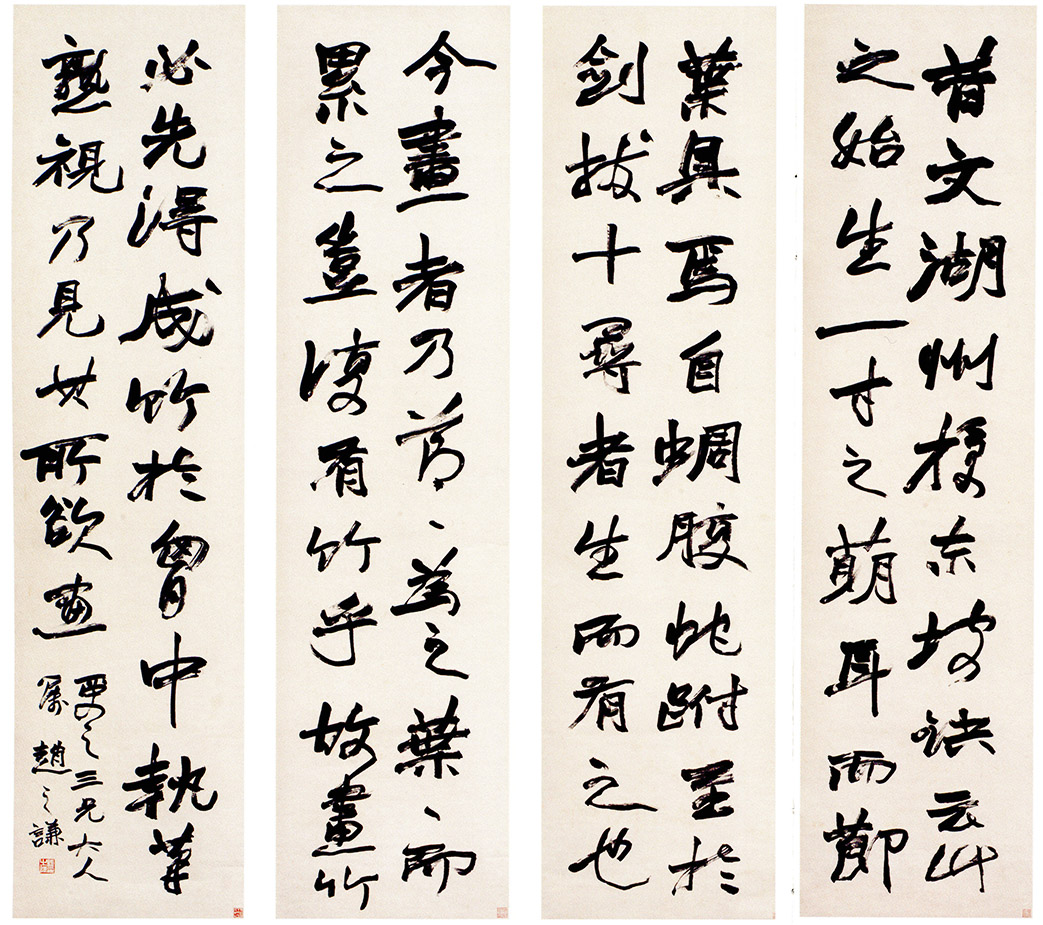 昔文湖州授東坡訣云竹
之始生一寸之萌耳而節
葉具焉自蜩腹蛇跗至於
劍拔十尋者生而有之也
今畫者乃節、為之葉、而
累之豈復有竹乎故畫竹
必先得成竹於胷中執筆
熟視乃見其所欲畫
更之三兄大人
屬趙之謙